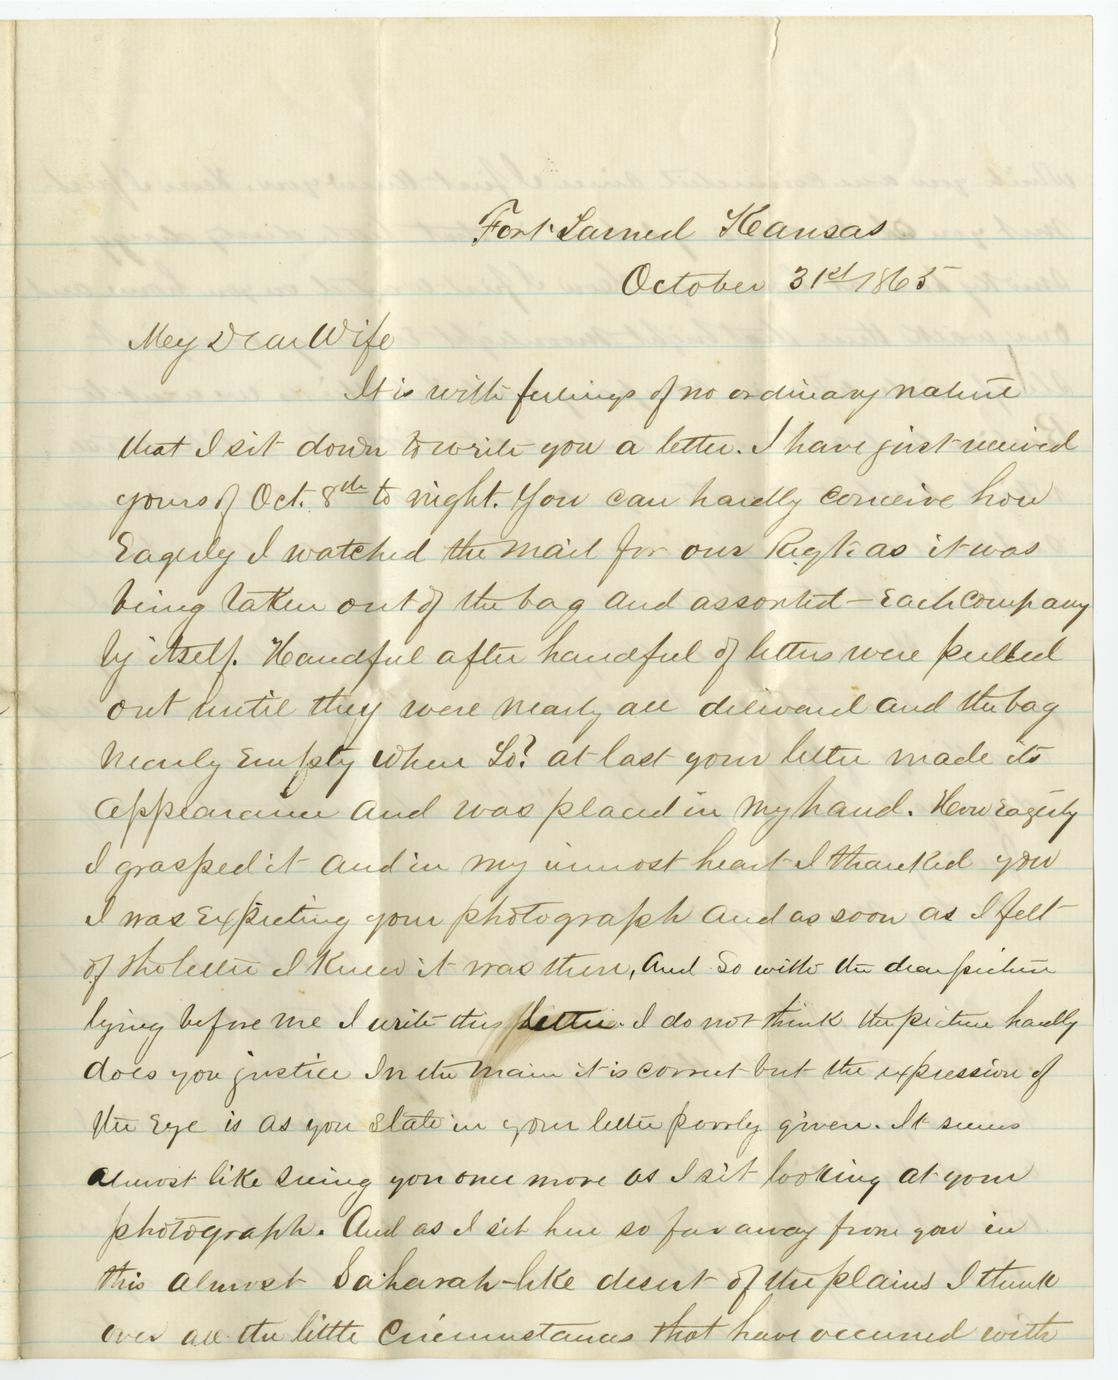 Fort Larned Kansas
October 31st 1865
My Dear Wife
It is with feelings of no ordinary nature
that I sit down to write you a letter. I have just received
yours of Oct. 8th to night. You can hardly conceive how
Eagerly I watched the mail for our Regt. as it was
being taken out of the bag and assorted – Each Company
by itself. Handful after handful of letters were pulled
out until they were nearly all deliverd and the bag
nearly Empty when Lo? at last your letter made its
appearance and was placed in my hand. How eagerly
I grasped it and in my inmost heart I thanked you
I was Expecting your photograph and as soon as I felt
of the letter I knew it was there, And So with the dear picture
lying before me I write this letter. I do not think the picture hardly
does you justice In the main it is correct but the expression of
the Eye is as you state in your letter poorly given. It seems
almost like seeing you once more as I sit looking at your
photograph. And as I sit here so far away from you in
this almost Saharah-like desert of the plains I think
over all the little Circumstances that have occurred with